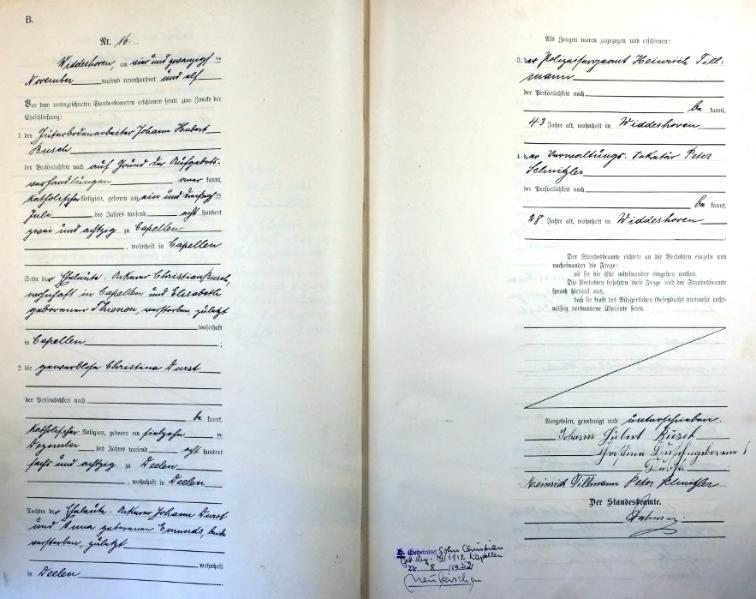 B.
Nr. 16.
Widdeshoven, am vier und zwanzigsten
November tausend neunhundert und elf
Vor dem unterzeichneten Standesbeamten erschienen heute zum Zwecke der
Eheschließung:
1. der Güterbodenarbeiter Johann Hubert
Busch
der Persönlichkeit nach auf Grund der Aufgebots-
verhandlungen anerkannt,
katholischer Religion, geboren am ein und dreißigsten
Juli des Jahres tausend acht hundert
zwei und achtzig zu Capellen
, wohnhaft in Capellen
Sohn der Eheleute Ackerer Christian Busch,
wohnhaft in Capellen und Elisabeth
geborenen Thenen, verstorben, zuletzt
wohnhaft
in Capellen ;
2. die gewerblose Christina Durst
der Persönlichkeit nach
be kannt,
katholischer Religion, geboren am siebzehn ten
Dezember des Jahres tausend acht hundert
sechs und achtzig zu Deelen
, wohnhaft in Deelen
Tochter der Eheleute Ackerer Johann Durst
und Anna geborenen Emunds, beide
verstorben, zuletzt
wohnhaft
in Deelen
Als Zeugen waren zugezogen und erschienen:
3. der Polizeisergeant Heinrich Till-
mann
der Persönlichkeit nach
be kannt,
43 Jahre alt, wohnhaft in Widdeshoven
4. der Verwaltungs-Sekretär Peter
Schmitzler
der Persönlichkeit nach
be kannt,
28 Jahre alt, wohnhaft in Widdeshoven
Der Standesbeamte richtete an die Verlobten einzeln und
nacheinander die Frage:
ob sie die Ehe miteinander eingehen wollen.
Die Verlobten bejahten diese Frage und der Standesbeamte
sprach hierauf aus,
daß sie kraft des Bürgerlichen Gesetzbuchs nunmehr recht-
mäßig verbundene Eheleute seien.
Vorgelesen, genehmigt und unterschrieben.
Johann Hubert Busch
Christina Busch geborene
Durst
Heinrich Tillmann Peter Schmitzler
Der Standesbeamte.
Sohn Christian
/1912 Kapellen
8
Neukirchen